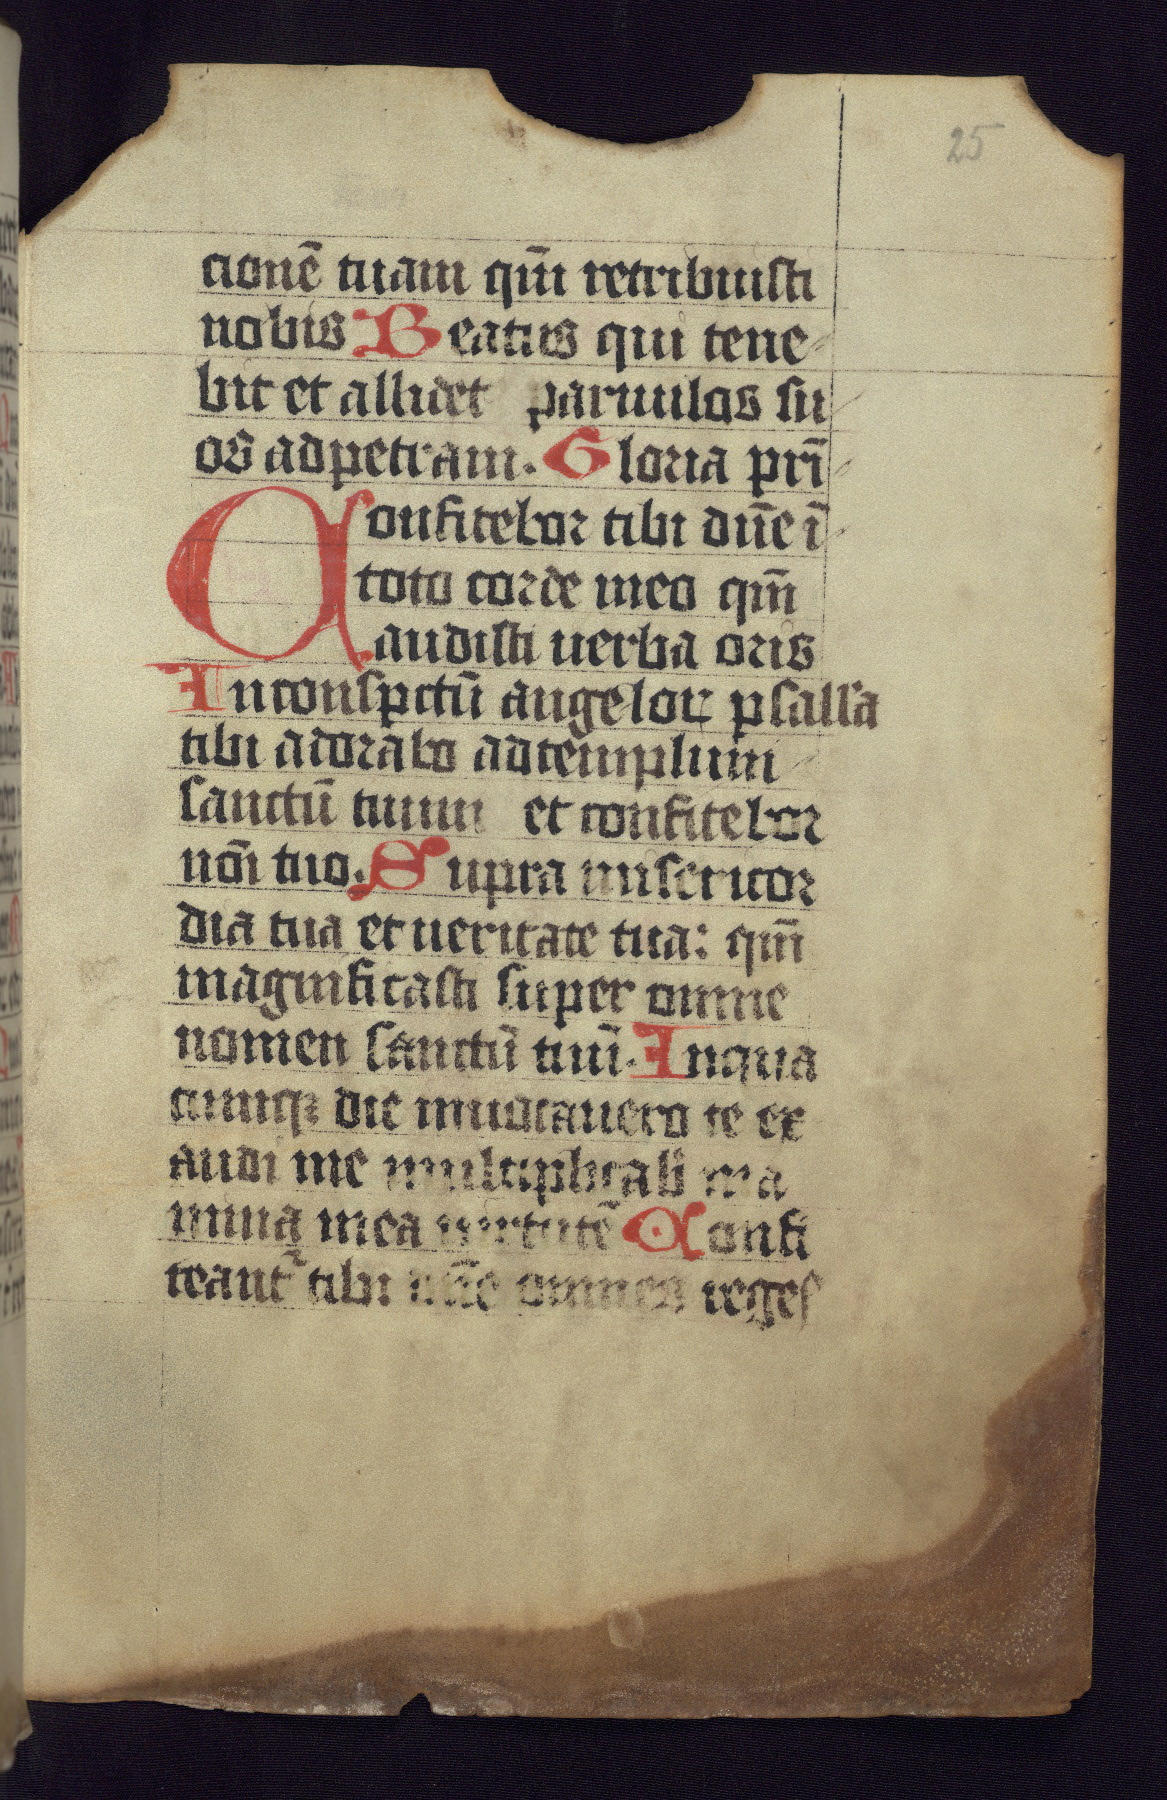 25
cionē tuam qm̄ retribuisti
nobis Beatus qui tene
bit et allidet paruulos su
os ad petram. Gloria pri̅
Confitebor tibi dn̄e ī
toto corde meo qm̄
audisti uerba oris
In conspctū angeloꝝ psalla
tibi adorabo ad templum
sanctū tuum et confitebor
nōi tuo. Supra misericor
dia tua et ueritate tua: qm̄
magnificasti super omne
nomen sanctū tuū. In qua
cumqꝫ die inuocauero te ex
audi me multiplicab̄ in a
nima mea uirtutē Confi
teant᷑ tibi dn̄e omnes reges